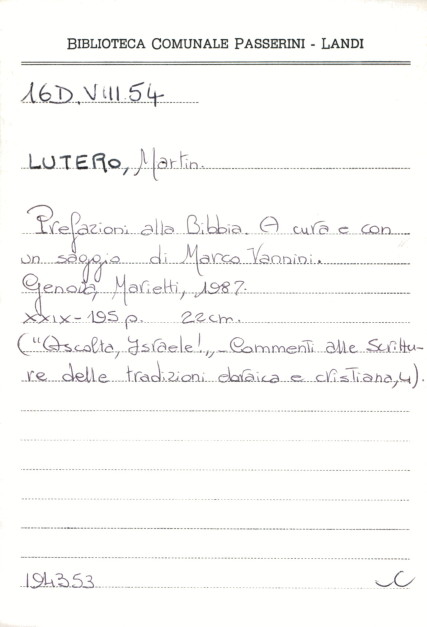 BIBLIOTECA COMUNALE PASSERINI - LANDI
16D.VIII.54
LUTERO, Martin.
Prefazioni alla Bibbia. A cura e con
un saggio di Marco Vannini.
Genova, Marietti, 1987.
XXIX-195 p. 22cm.
("Ascolta, Israele!„ - Commenti alle Scrittu-
re delle tradizioni ebraica e cristiana, 4).
194353